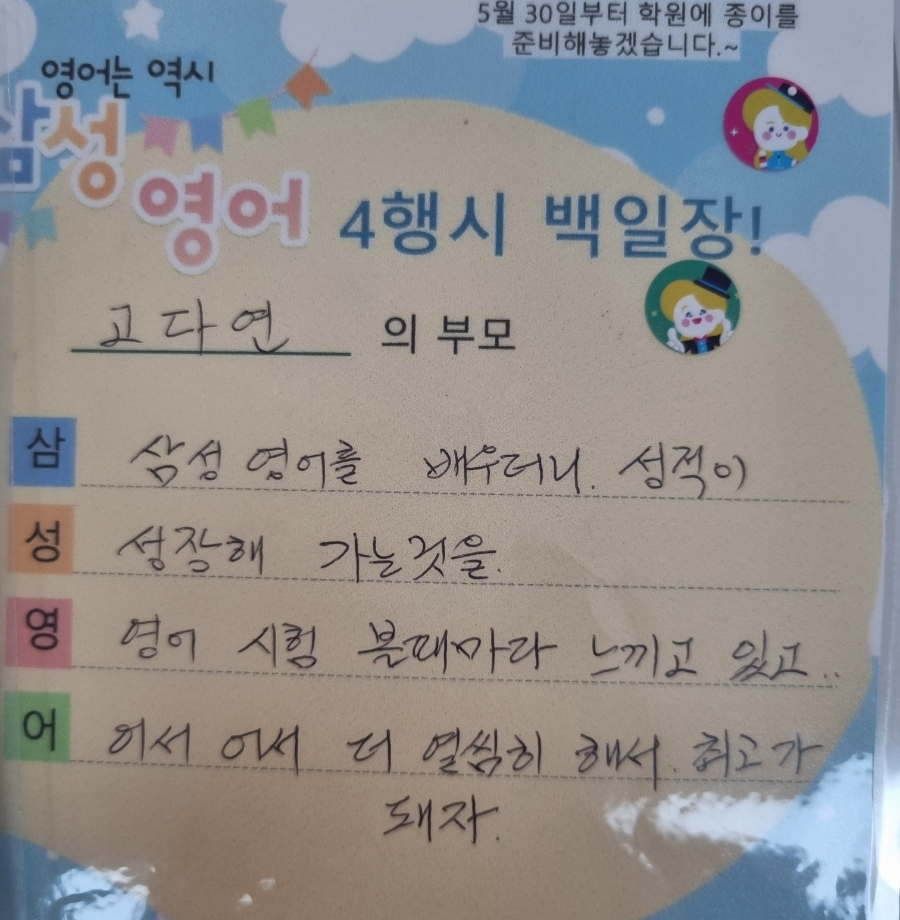 5월 30일부터 학원에 종이를
준비해놓겠습니다.~
영어는 역시
삼성
영어 4행시 백일장!
고다연 의 부모
삼 삼성 영어를 배우더니. 성적이
성 성장해 가는것을.
영 영어 시험 볼때마다 느끼고 있고..
어 어서 어서 더 열씸히 해서. 최고가
돼자.